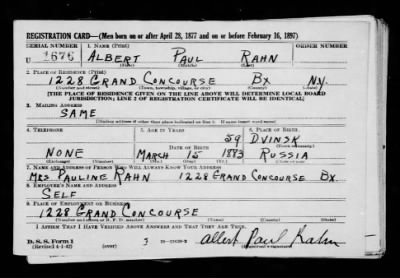 REGISTRATION CARD—(Men born on or after April 28, 1877 and on or before February 16, 1897)
SERIAL NUMBER 1. NAME (Print) ORDER NUMBER
U 1676 ALBERT PAUL RAHN
(First) (Middle) (Last)
2. PLACE OF RESIDENCE (Print)
1228 GRAND CONCOURSE BX N.Y.
(Number and street) (Town, township, village, or city) (County) (State)
[THE PLACE OF RESIDENCE GIVEN ON THE LINE ABOVE WILL DETERMINE LOCAL BOARD
JURISDICTION; LINE 2 OF REGISTRATION CERTIFICATE WILL BE IDENTICAL]
3. MAILING ADDRESS
SAME
[Mailing address if other than place indicated on line 2. If same insert word same]
4. TELEPHONE 5. AGE IN YEARS 6. PLACE OF BIRTH
59 DVINSK
DATE OF BIRTH (Town or county)
NONE MARCH 15 1883 RUSSIA
(Exchange) (Number) (Mo.) (Day) (Yr.) (State or country)
7. NAME AND ADDRESS OF PERSON WHO WILL ALWAYS KNOW YOUR ADDRESS
MRS PAULINE RAHN 1228 GRAND CONCOURSE BX.
8. EMPLOYER'S NAME AND ADDRESS
SELF
9. PLACE OF EMPLOYMENT OR BUSINESS
1228 GRAND CONCOURSE
(Number and street or R. F. D. number) (Town) (County) (State)
I AFFIRM THAT I HAVE VERIFIED ABOVE ANSWERS AND THAT THEY ARE TRUE.
D. S. S. Form 1
(Revised 4-1-42) (over) Albert Paul Rahn
(Registrant's signature)